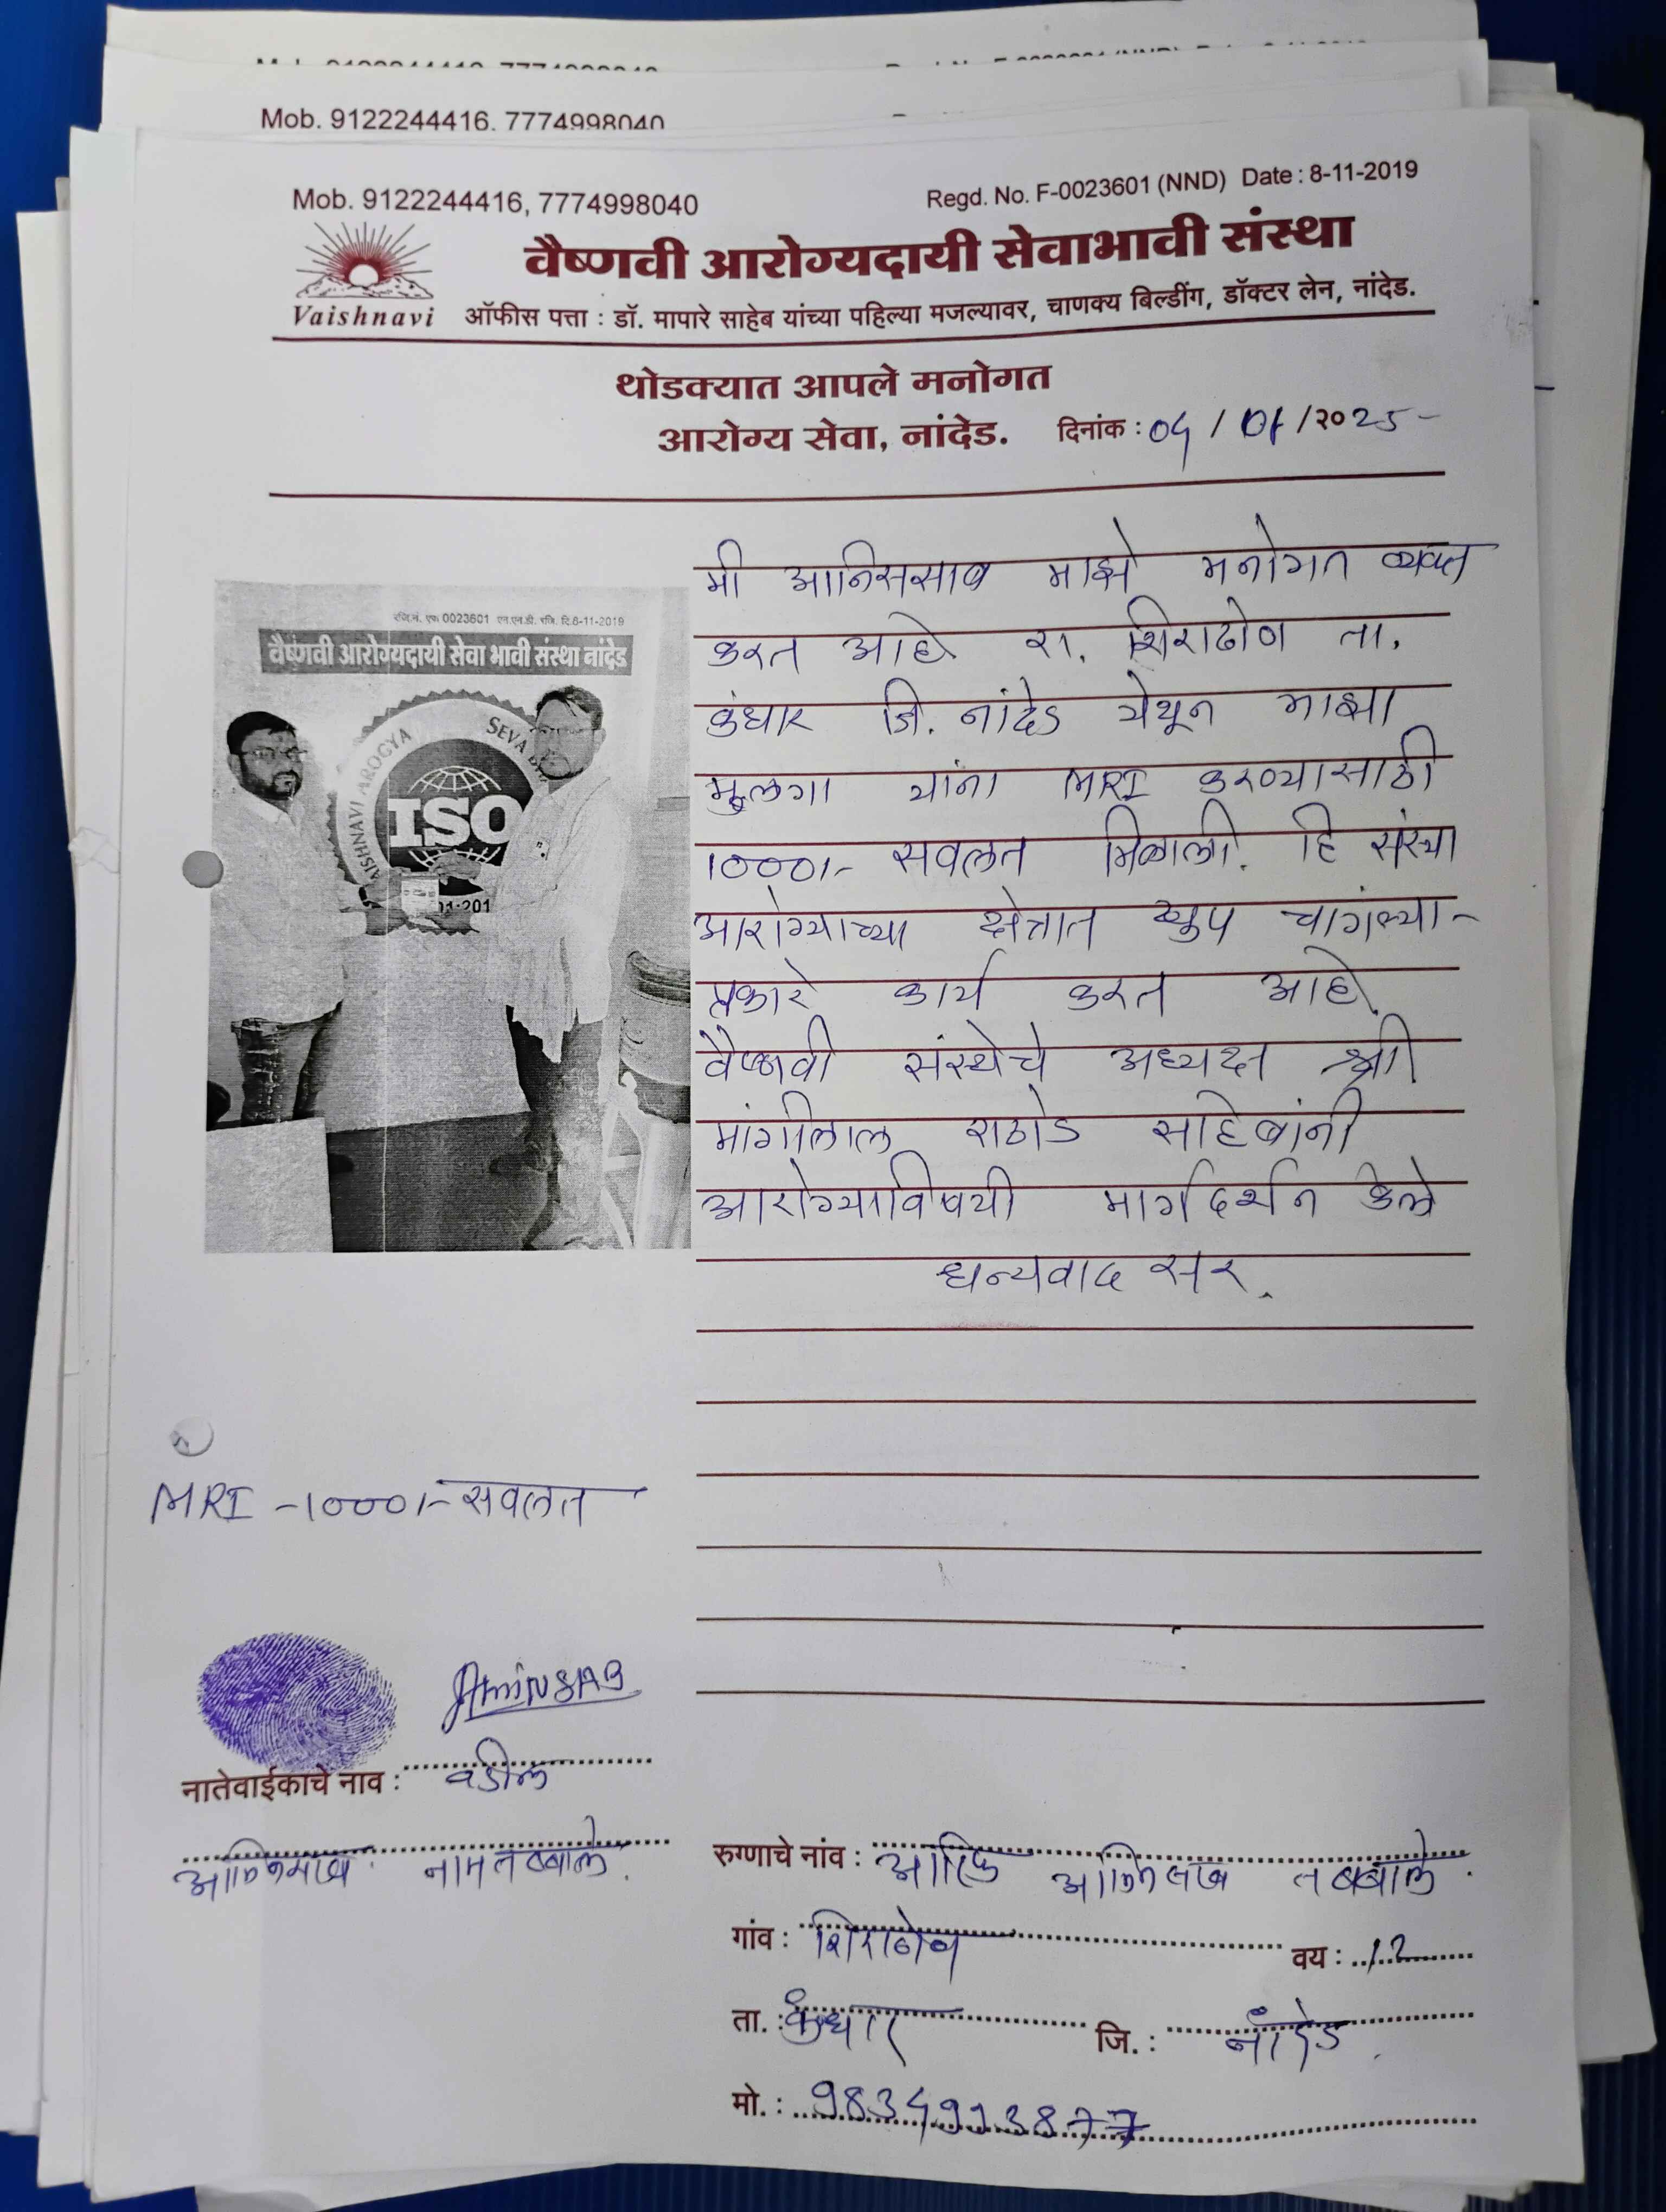 Mob. 9122244416, 7774998040
Mob. 9122244416, 7774998040
Regd. No. F-0023601 (NND) Date : 8-11-2019
वैष्णवी आरोग्यदायी सेवाभावी संस्था
Vaishnavi
ऑफीस पत्ता : डॉ. मापारे साहेब यांच्या पहिल्या मजल्यावर, चाणक्य बिल्डींग, डॉक्टर लेन, नांदेड.
थोडक्यात आपले मनोगत
आरोग्य सेवा, नांदेड.
दिनांक : / 01 / २० 25
रजि.नं. एफ 0023601 एन.एन.डी. रजि. दि.8-11-2019
वैष्णवी आरोग्यदायी सेवा भावी संस्था नांदेड
VAISHNAVI AROGYA
SEVA
ISO
01:201
मी माझे मनोगत व्यक्त
करत आहे रा. शिराढोण ता.
कंधार जि. नांदेड येथून माझा
मुलगा यांना MRI करण्यासाठी
1000/- सवलत मिळाली. हि संस्था
आरोग्याच्या क्षेत्रात खुप चांगल्या-
प्रकारे कार्य करत आहे.
वैष्णवी संस्थेचे अध्यक्ष श्री
मांगीलाल राठोड साहेबांनी
आरोग्याविषयी मार्गदर्शन केले
धन्यवाद सर.
MRI -1000/- सवलत
AminSAB
नातेवाईकाचे नाव : वडील
रुग्णाचे नांव :
गांव : शिराढोण
वय : 12
ता. : कंधार
जि. : नांदेड.
मो. :